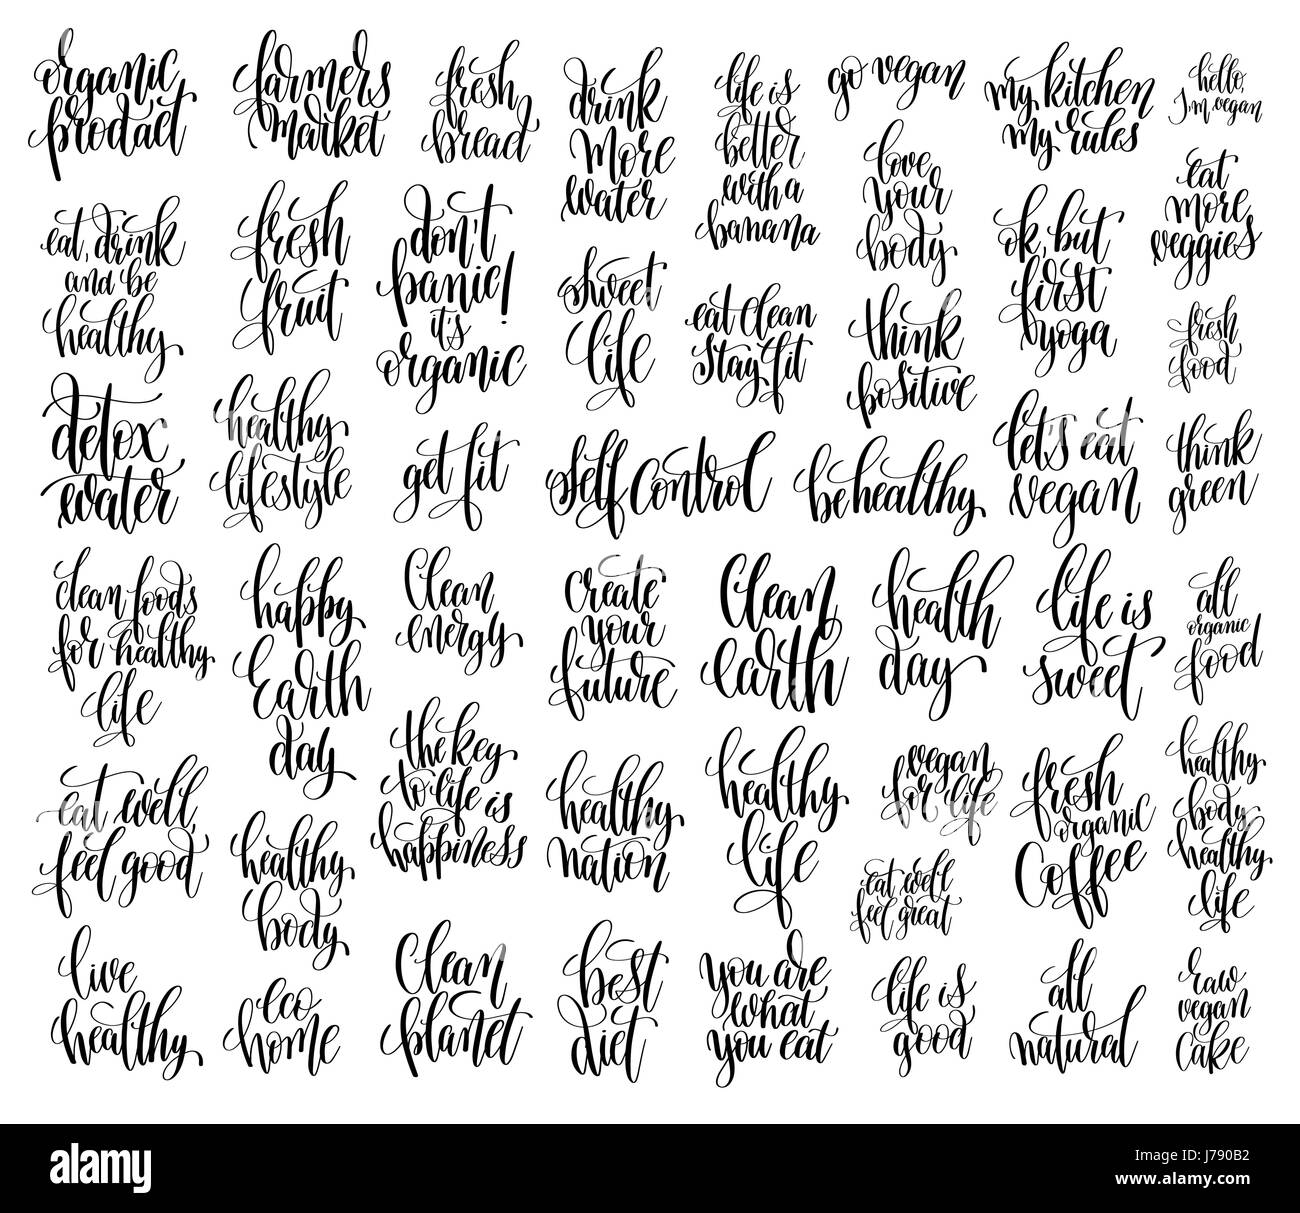 organic
product
farmers
market
fresh
bread
drink
more
water
life is
better
with a
banana
go vegan
my kitchen
my rules
hello,
I'm vegan
eat, drink
and be
healthy
fresh
fruit
don't
panic!
it's
organic
sweet
life
love
your
body
ok, but
first
yoga
eat
more
veggies
eat clean
stay fit
think
positive
fresh
food
detox
water
healthy
lifestyle
get fit
self control
be healthy
let's eat
vegan
think
green
clean foods
for healthy
life
happy
Earth
day
Clean
energy
create
your
future
Clean
Earth
health
day
life is
sweet
all
organic
food
eat well,
feel good
healthy
body
the key
to life is
happiness
healthy
nation
healthy
life
vegan
for life
eat well
feel great
fresh
organic
Coffee
healthy
body
healthy
life
live
healthy
eco
home
Clean
planet
best
diet
you are
what
you eat
life is
good
all
natural
raw
vegan
cake
alamy
Image ID: J790B2
www.alamy.com